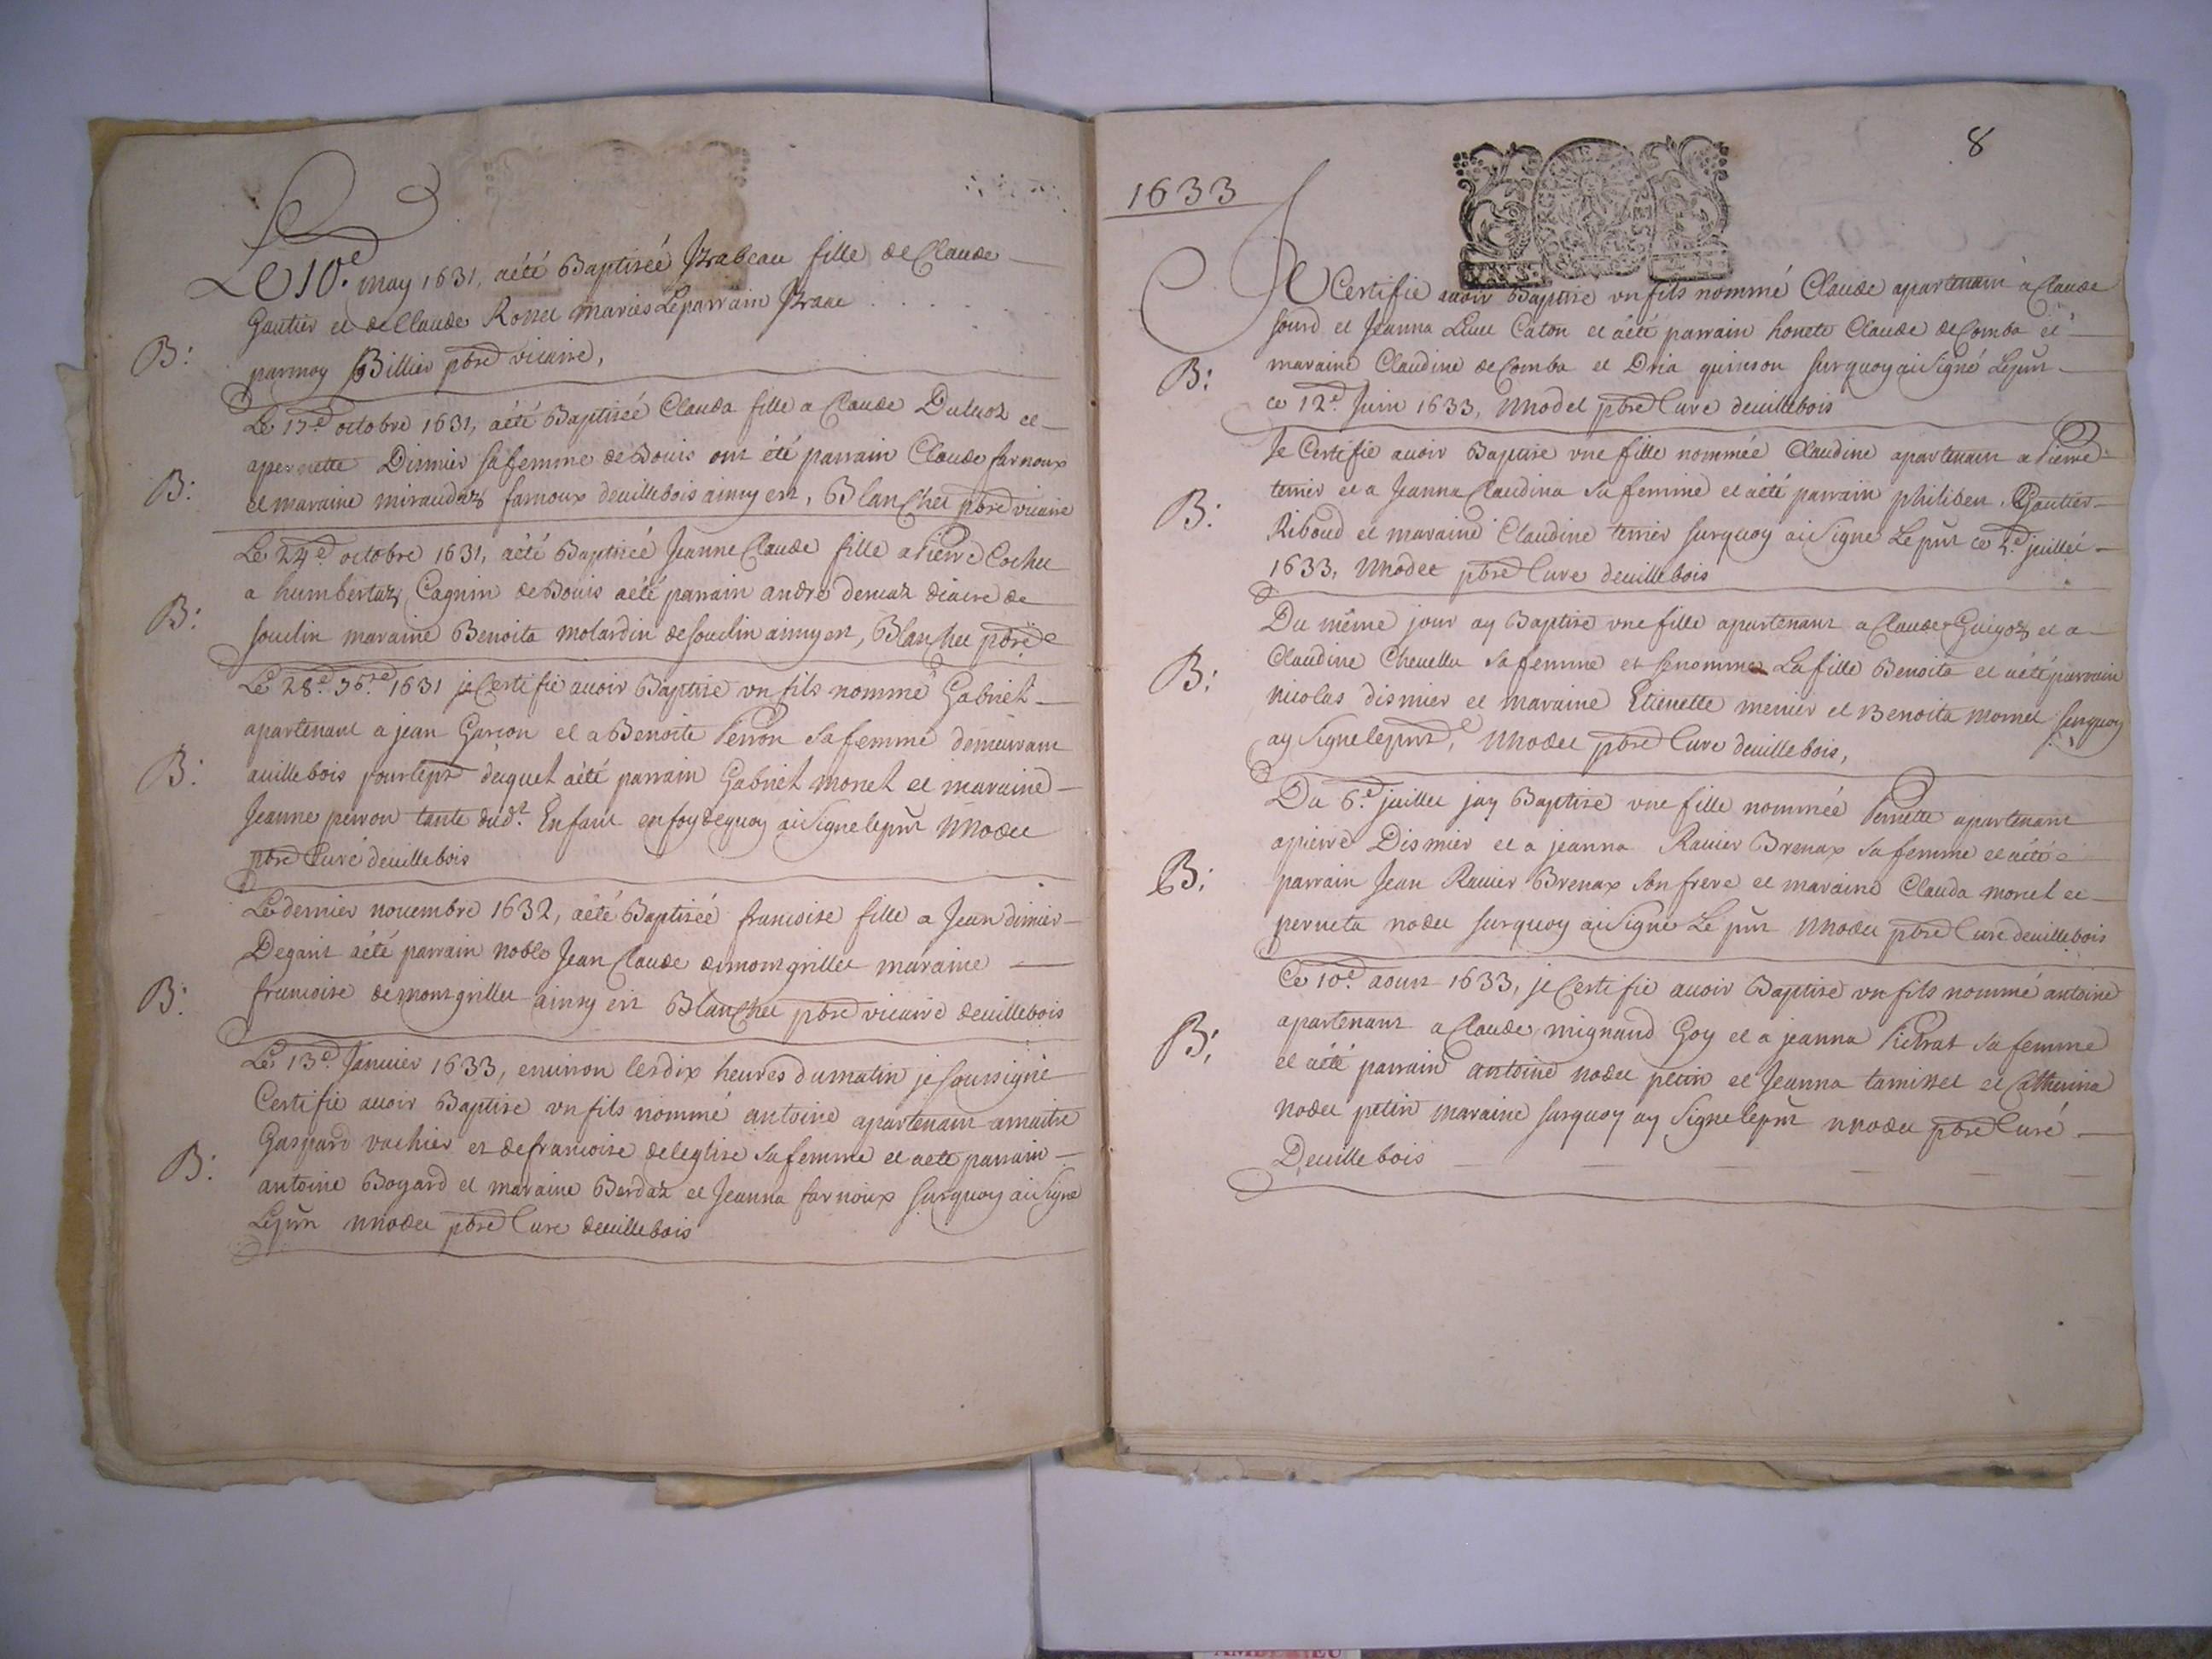 Le 10.e may 1631, aété Baptiseé Izabeau fille de Claude
Gautier et de Claude Rosset mariés Le parrain Izaac . . . .
B: parmoy Billier pbre vicaire,
Le 17.e octobre 1631, aété Baptiseé Clauda fille a Claude et
apernette Dismier sa femme de Bouis ont été parrain Claude farnoux
B: et maraine miraudaz farnoux deuillebois ainsy est, Blanchet pbre vicaire
Le 24.e octobre 1631, aété Baptiseé Jeanne Claude fille a Pierre Cochet
a humbertaz Cagnin de Bouis aété parrain andré deneaz diacre de
B: souclin maraine Benoita molardin de souclin ainsy est, Blanchet pbre
Le 28.e 1631 je Certifie auoir Baptise vn fils nommé Gabriel
apartenant a jean Garion et a Benoite Perron sa femme demeurant
B: auillebois pourlepr duquel aété parrain Gabriel monet et maraine
Jeanne perron tante dud.t Enfant enfoydequoy ai Signe leprnt Nnodet
pbre Curé deuillebois
Le dernier nouembre 1632, aété Baptiseé francoise fille a Jean dimier
Degarit aété parrain noble Jean Claude demontgrillet maraine
B: francoise demontgrillet ainsy est Blanchet pbre vicaire deuillebois
Le 13.e Januier 1633, enuiron lesdix heures dumatin je soussigné
Certifie auoir Baptise vn fils nommé antoine apartenant amaitre
Gaspard vachier et defrancoise deleglise sa femme et aeté parrain
B: antoine Bogard et maraine Berdaz et Jeanna farnoux surquoy ai Signe
Leprnt Nnodet pbre Cure deuillebois
8
1633
Je Certifie auoir Baptise vn fils nommé Claude apartenant a Claude
sourd et Jeanna Luu Caton et aété parrain honete Claude deComba et
B: maraine Claudine deComba et Dria quinson surquoy ai Signé Leprnt
ce 12.e Juin 1633, Nnodet pbre Cure deuillebois
Je Certifie auoir Baptise vne fille nommeé Claudine apartenant a Pierre
terrier et a Jeanna Claudina sa femme et aété parrain philibert Gautier
B: Riboud et maraine Claudine terrier surquoy ai Signé Le prnt ce juillet
1633, Nnodet pbre Cure deuillebois
Du même jour ay Baptise vne fille apartenant a Claude Guigoz et a
B: Claudine Cheuellu sa femme et senomme La fille Benoita et aété parrain
nicolas dismier et maraine Etienette menier et Benoita mornet surquoy
ay Signeleprnt, Nnodet pbre Cure deuillebois,
Du 6.e juillet jay Baptise vne fille nommeé Pernette apartenant
apierre Dismier et a jeanna Rauier Brenax sa femme et aété
B: parrain Jean Rauier Brenax son frere et maraine Clauda monet et
perneta nodet surquoy ai Signé Le prnt Nnodet pbre Cure deuillebois
Ce 10.e aoust 1633, je Certifie auoir Baptise vn fils nommé antoine
B: apartenant a Claude mignaud Goy et a jeanna Pichrat sa femme
et aété parrain antoine nodet petin et Jeanna tamisset et Catherina
nodet petin maraine surquoy ay Signe leprnt Nnodet pbre Curé
Deuillebois